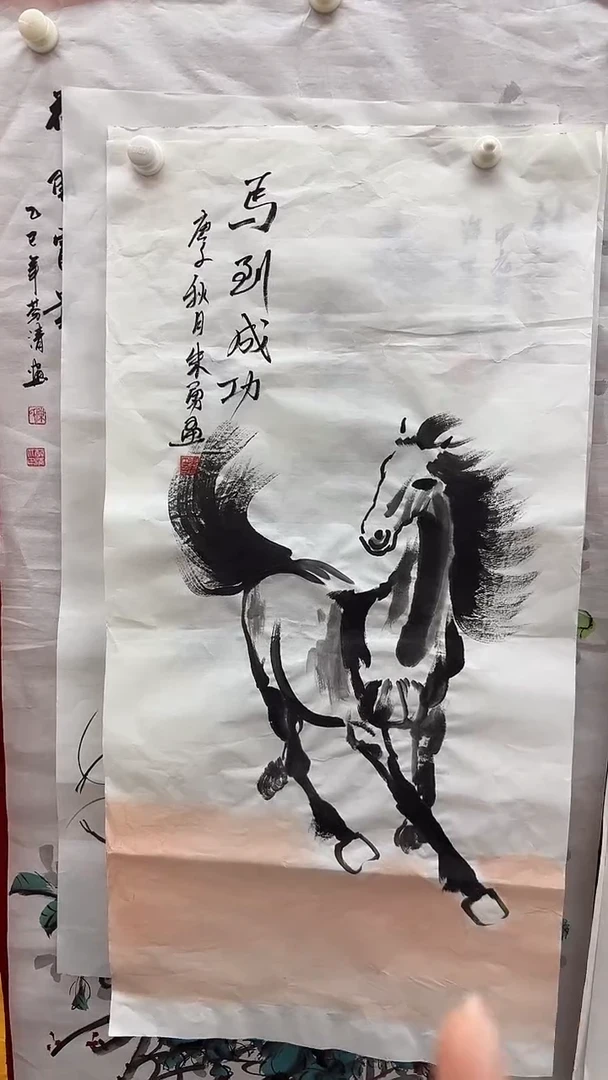 馬到成功
庚子秋月朱勇画
乙巳年黄清画